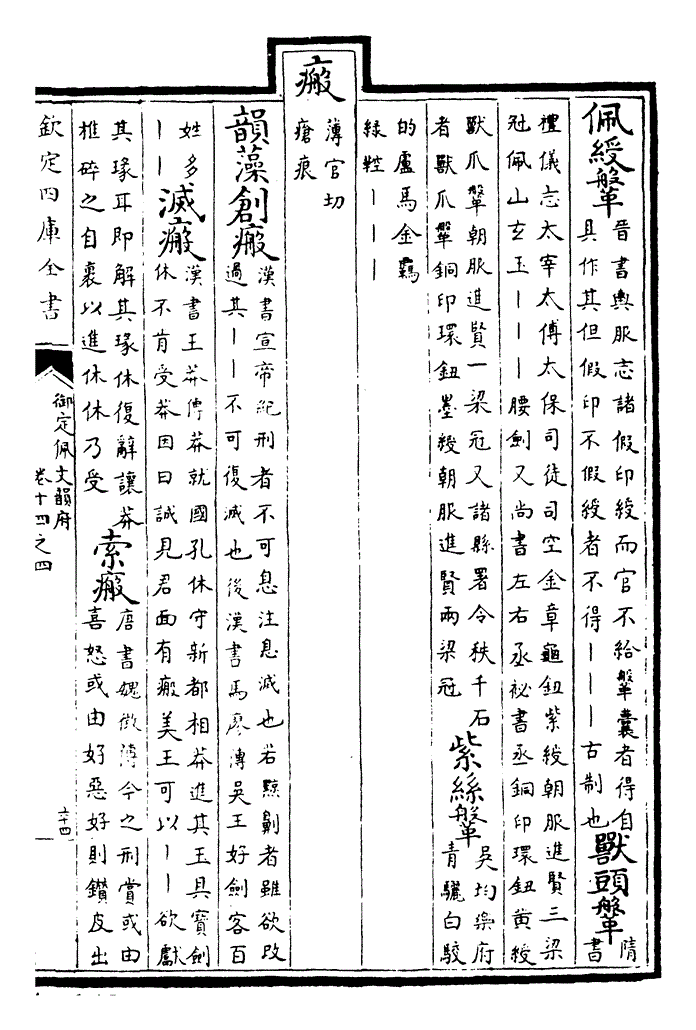 佩綬鞶
晉書輿服志諸假印綬而官不給鞶囊者得自
具作其但假印不假綬者不得丨丨丨古制也
獸頭鞶
隋
書
禮儀志太宰太傅太保司徒司空金章龜鈕紫綬朝服進賢三梁
冠佩山玄玉丨丨丨腰劍又尚書左右丞祕書丞銅印環鈕黃綬
獸爪鞶朝服進賢一梁冠又諸縣署令秩千石
者獸爪鞶銅印環鈕墨綬朝服進賢兩梁冠
紫絲鞶
吳均樂府
青驪白駮
的盧馬金羈
綠鞚丨丨丨
瘢
薄官切
瘡痕
韻藻創瘢
漢書宣帝紀刑者不可息注息滅也若黥劓者雖欲改
過其丨丨不可復滅也後漢書馬廖傳吳王好劍客百
姓多
丨丨
滅瘢
漢書王莽傳莽就國孔休守新都相莽進其玉具寶劍
休不肯受莽因曰誠見君面有瘢美王可以丨丨欲獻
其瑑耳即解其瑑休復辭讓莽
椎碎之自裹以進休休乃受
索瘢
唐書魏徵傳今之刑賞或由
喜怒或由好惡好則鑽皮出
欽定四庫全書
御定佩文韻府
卷十四之四
六十四